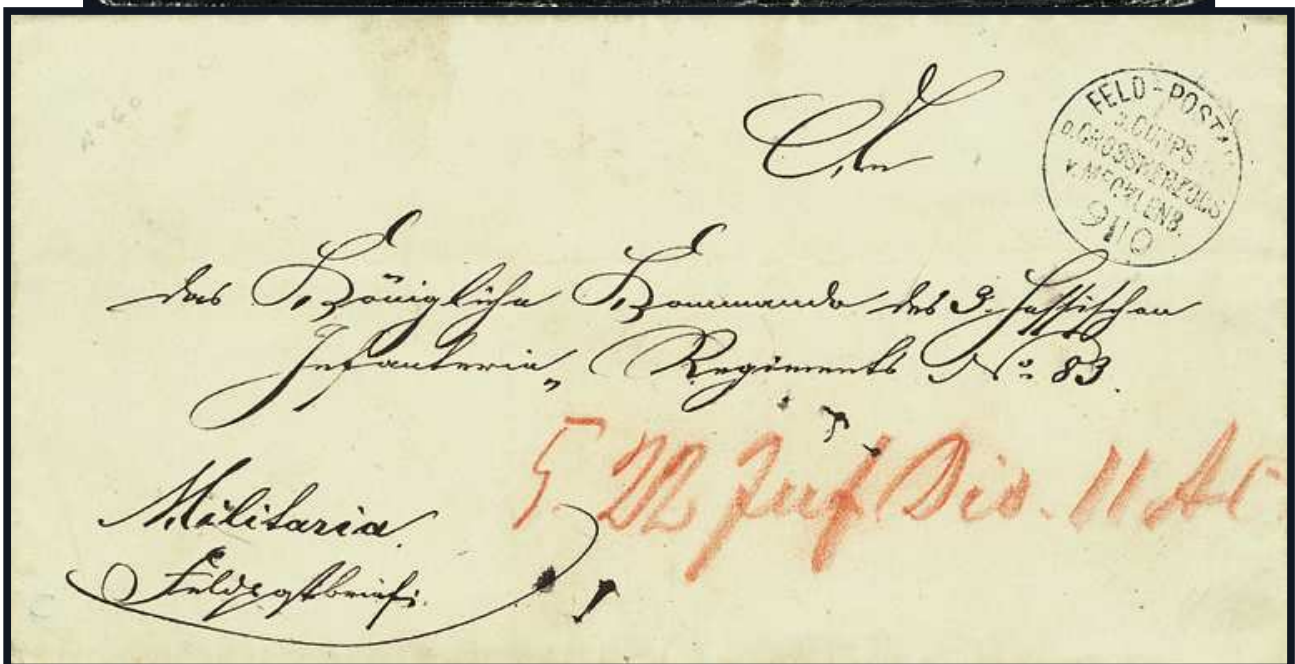 An
FELD-POST
D. CORPS
D. GROSSHERZOGS
v. MECKLENB.
9 11 0
das Königliche Kommando des 3. Hessischen
Infanterie, Regiments No. 83.
5. 22 Inf Div. 11 AC
Militaria.
Feldpostbrief.